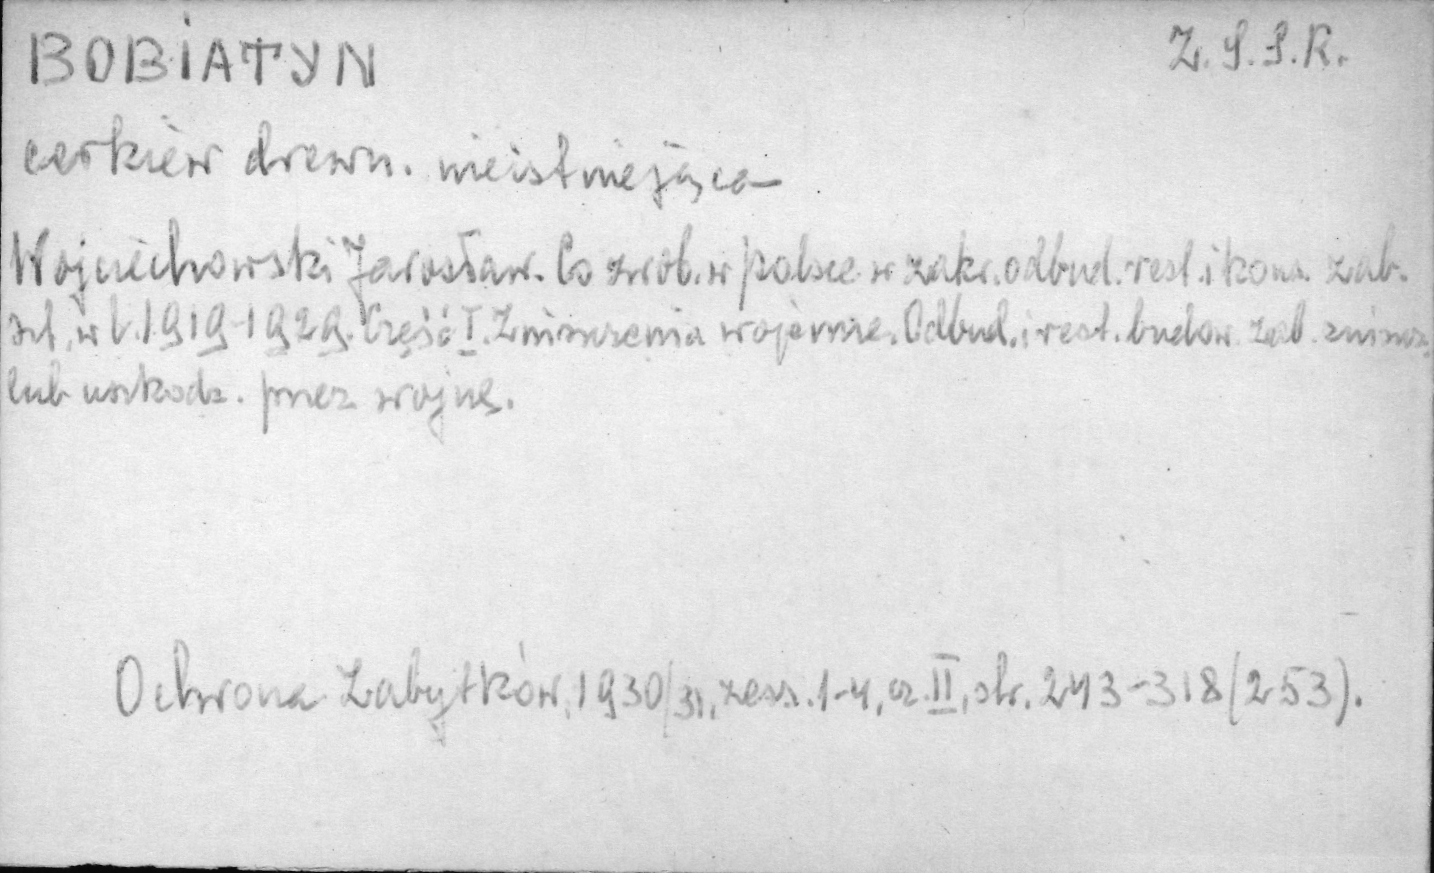 BOBIATYN Z.S.S.R.
cerkiew drewn. nieistniejąca
Wojciechowski Jarosław. Co zrob. w Polsce w zakr. odbud. rest. i kons. zab.
szt. w l. 1919-1929. Część I. Zniszczenia wojenne. Odbud. i rest. budow. zab. zniszcz.
lub uszkodz. przez wojnę.
Ochrona Zabytków, 1930/31, zesz. 1-4, cz. II, str. 243-318 (253).